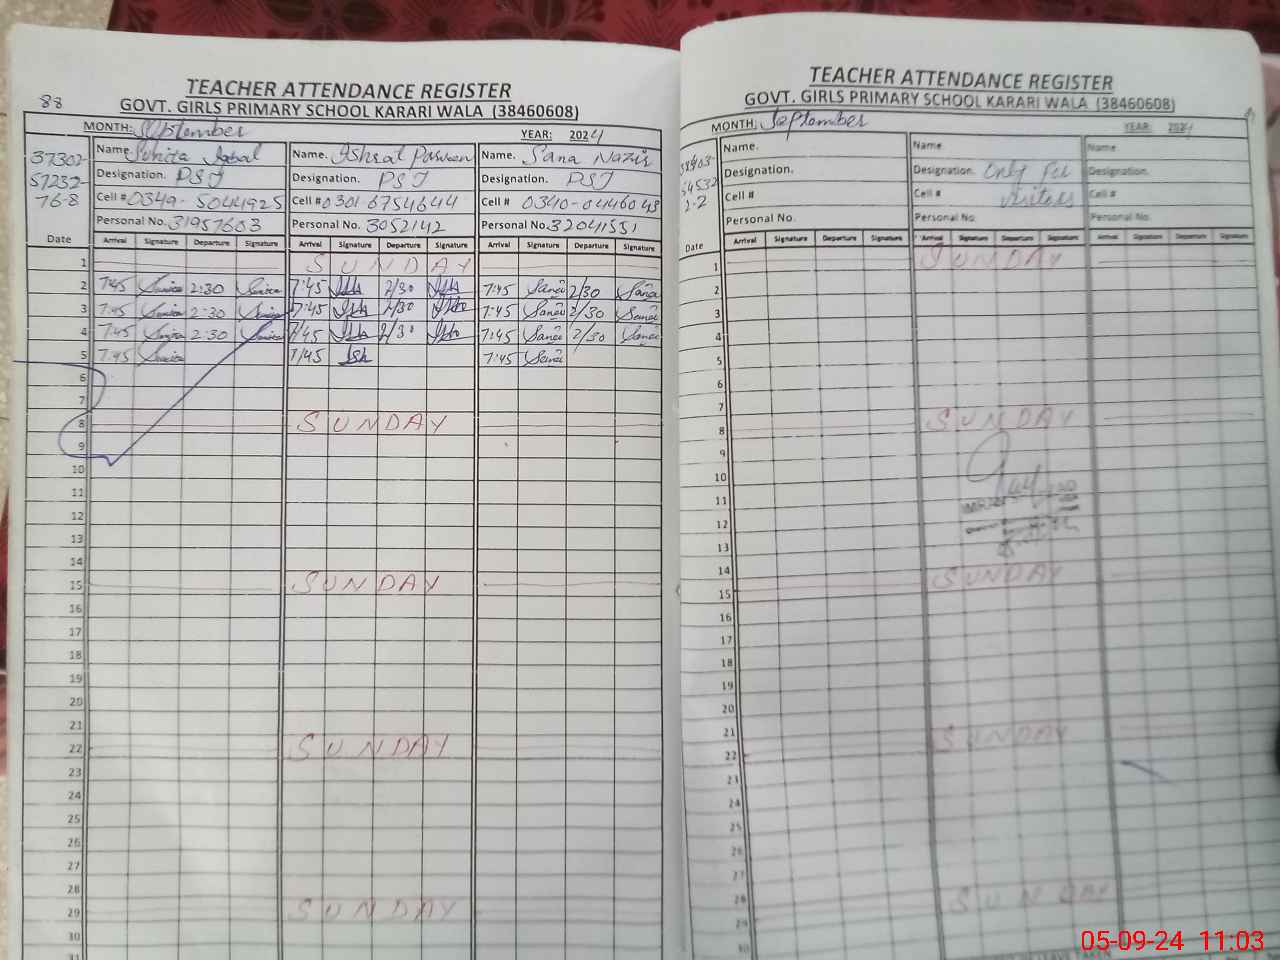 88
TEACHER ATTENDANCE REGISTER
GOVT. GIRLS PRIMARY SCHOOL KARARI WALA (38460608)
MONTH: September YEAR: 2024
37302-
51232-
76-8
Name. Iqbal Name. Ishrat Parveen Name. Sana Nazir
Designation. PST Designation. PST Designation. PST
Cell # 0349-5044925 Cell # 0301 6754644 Cell # 0340-0446048
Personal No. 31957603 Personal No. 3052142 Personal No. 32041551
Date Arrival Signature Departure Signature Arrival Signature Departure Signature Arrival Signature Departure Signature
1 SUNDAY
2 7:45 2:30 7:45 Ish 2/30 Ish 7:45 Sana 2/30 Sana
3 7:45 2:30 7:45 Ish 2/30 Ish 7:45 Sana 2/30 Sana
4 7:45 2:30 7/45 Ish 2/30 Ish 7:45 Sana 2/30 Sana
5 7:45 7/45 Ish 7:45 Sana
6
7
8 SUNDAY
9
10
11
12
13
14
15 SUNDAY
16
17
18
19
20
21
22 SUNDAY
23
24
25
26
27
28
29 SUNDAY
30
31
TEACHER ATTENDANCE REGISTER
GOVT. GIRLS PRIMARY SCHOOL KARARI WALA (38460608)
MONTH: September YEAR: 2024
Name. Name Name
Designation. Designation. Only For Designation.
Cell # Cell # Visitors Cell #
Personal No. Personal No. Personal No.
Date Arrival Signature Departure Signature Arrival Signature Departure Signature Arrival Signature Departure Signature
1 SUNDAY
2
3
4
5
6
7 SUNDAY
8
9
10
11
12
13
14 SUNDAY
15
16
17
18
19
20
21 SUNDAY
22
23
24
25
26
27
28 SUNDAY
29
30
05-09-24 11:03